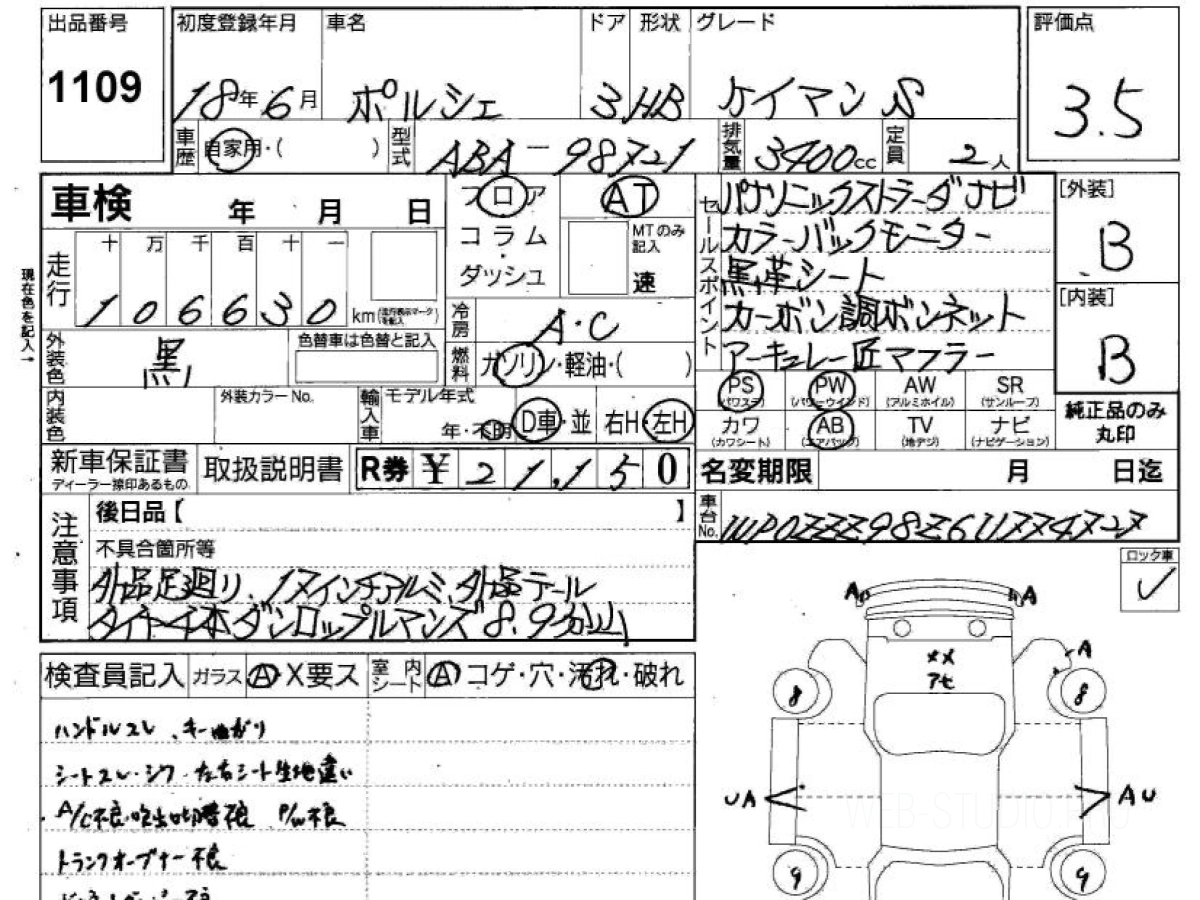 出品番号
1109
初度登録年月 車名 ドア 形状 グレード
18年6月 ポルシェ 3 HB ケイマン S
評価点
3.5
車歴 自家用・( ) 型式 ABA-98721 排気量 3400cc 定員 2人
車検 年 月 日
フロア
コラム
・
ダッシュ
AT
MTのみ
記入
速
セールスポイント
パナソニックストラーダナビ
カラーバックモニター
黒革シート
カーボン調ボンネット
アーキュレー匠マフラー
[外装]
B
[内装]
B
純正品のみ
丸印
現在色を記入→
走行 十 万 千 百 十 一
106630 km
冷房 A・C
燃料 ガソリン・軽油・( )
外装色 黒 色替車は色替と記入
内装色 外装カラーNo. 輸入車 モデル年式
年・不明 D車・並 右H・左H
PS PW AW SR
(パワステ) (パワーウインド) (アルミホイル) (サンルーフ)
カワ AB TV ナビ
(カワシート) (エアバック) (地デジ) (ナビゲーション)
新車保証書
ディーラー捺印あるもの
取扱説明書 R券 ¥21,150
名変期限 月 日迄
車台No. WP0ZZZ98Z6U774727
注意事項
後日品【 】
不具合箇所等
外品足廻り、17インチアルミ、外品テール
タイヤ4本ダンロップルマンズ8.9分山
ロック車
✓
検査員記入 ガラス A X要ス 室内シート A コゲ・穴・汚れ・破れ
ハンドルスレ、キー曲がり
シートスレ・シワ・左右シート生地違い
A/C不良・吹出口切替不良 P/W不良
トランクオープナー不良
A A
XX
アセ
A
8 8
UA AU
9 9
WEB-STUDIO.PRO